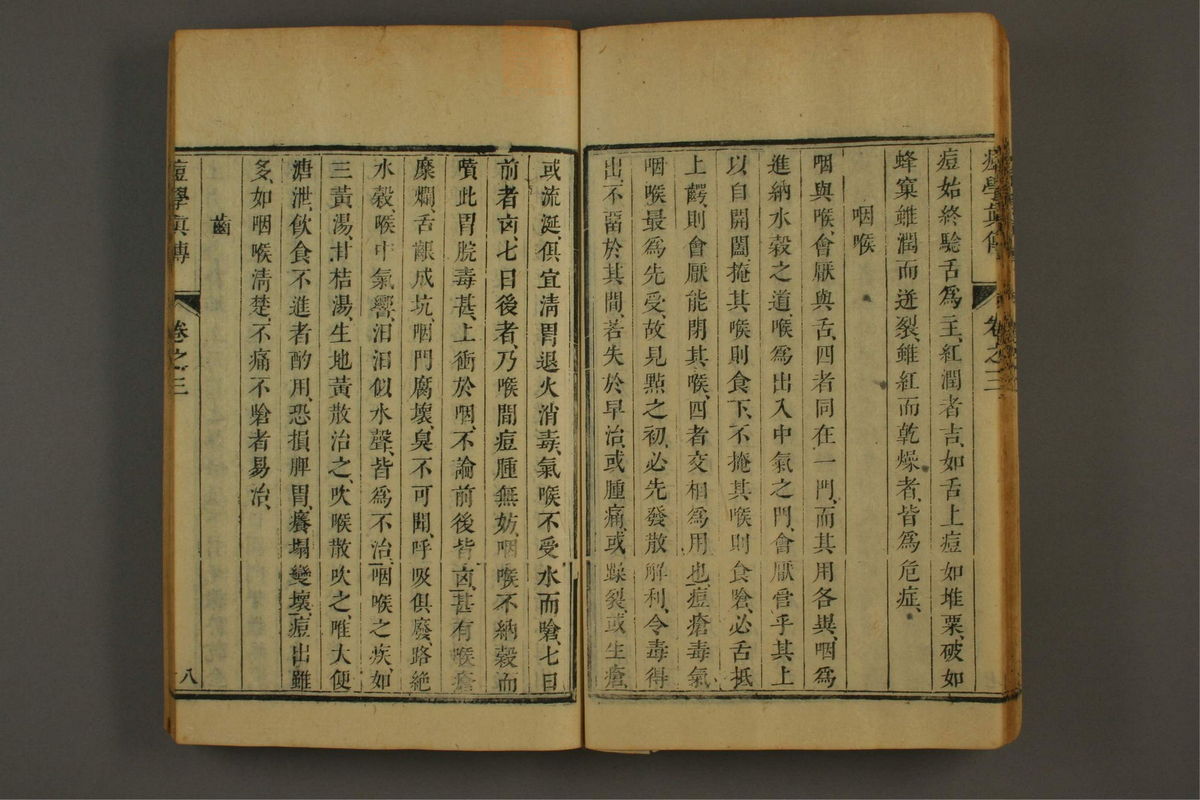 痘學真傳 卷之三
痘始終驗舌爲主、紅潤者吉、如舌上痘如堆粟、破如
蜂窠、雖潤而迸裂、雖紅而乾燥者、皆爲危症、
咽喉
咽與喉、會厭與舌、四者同在一門、而其用各異、咽爲
進納水穀之道、喉爲出入中氣之門、會厭管乎其上、
以自開闔、掩其喉則食下、不掩其喉則食嗆、必舌抵
上齶、則會厭能閉其喉、四者交相爲用也、痘瘡毒氣
咽喉最爲先受、故見點之初、必先發散解利、令毒得
出、不畱於其間、若失於早治、或腫痛、或躁裂、或生瘡
或流涎、俱宜淸胃退火消毒、氣喉不受水而嗆、七日
前者凶、七日後者、乃喉間痘腫無妨、咽喉不納穀而
噴、此胃脘毒甚、上衝於咽、不論前後皆凶、甚有喉瘡
糜爛、舌齦成坑、咽門腐壞、臭不可聞、呼吸俱廢、路絶
水穀、喉中氣響、汩汩似水聲、皆爲不治、咽喉之疾、如
三黃湯、甘桔湯、生地黃散治之、吹喉散吹之、唯大便
溏泄、飲食不進者酌用、恐損脾胃、癢塌變壞、痘出雖
多、如咽喉淸楚、不痛不嗆者易治、
齒
痘學真傳 卷之三 八